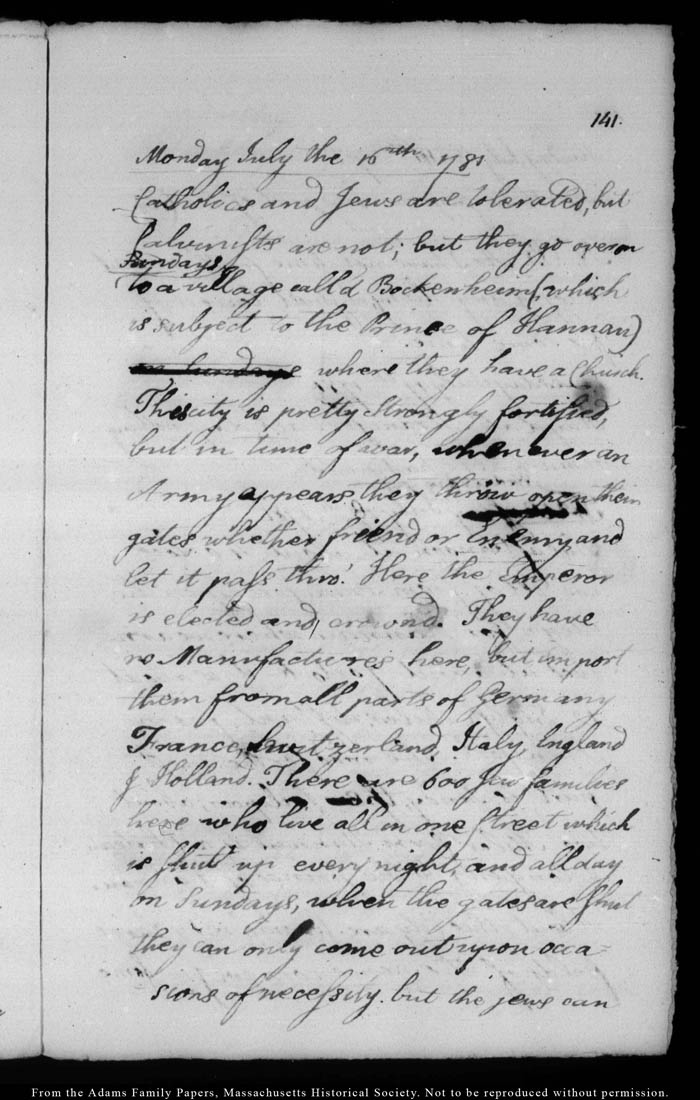 141.
Monday July the 16th 1781
Catholics and Jews are tolerated, but
Calvinists are not; but they go over on
Sundays
to a village calld Bockenheim (which
is subject to the Prince of Hannau)
on Sundays where they have a Church.
This city is pretty strongly fortified,
but in time of war, whenever an
Army appears they throw open their
gates whether friend or Enemy, and
let it pass thro'. Here the Emperor
is elected and crownd. They have
no Manufactures here, but import
them from all parts of Germany
France, Switzerland, Italy, England
& Holland. There are 600 Jew families
here who live all in one street which
is shut up every night, and all day
on Sundays, when the gates are shut
they can only come out upon occa=
sions of necessity. but the jews can
From the Adams Family Papers, Massachusetts Historical Society. Not to be reproduced without permission.